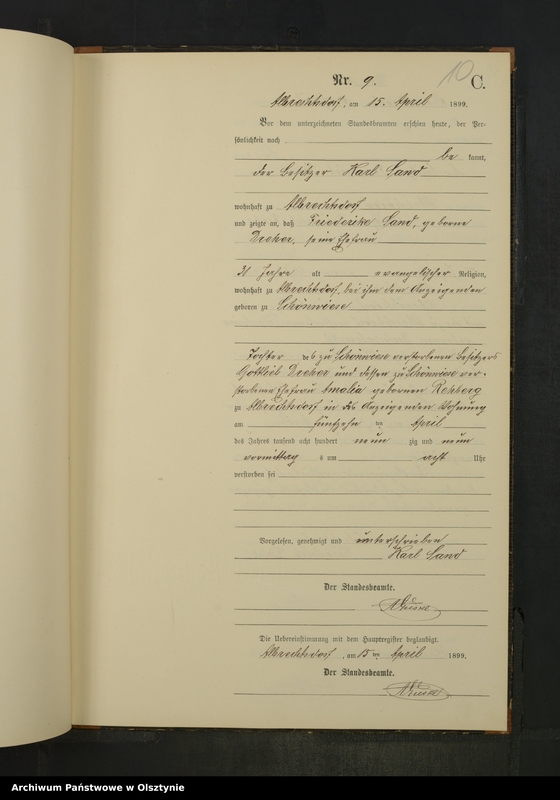 10
Nr. 9. C.
Albrechtsdorf, am 15. April 1899.
Vor dem unterzeichneten Standesbeamten erschien heute, der Per-
sönlichkeit nach
be kannt,
der Besitzer Karl Sand
wohnhaft zu Albrechtsdorf
und zeigte an, daß Friederike Sand, geborne
Dreher, seine Ehefrau
31 Jahre alt evangelischer Religion,
wohnhaft zu Albrechtsdorf, bei ihm dem Anzeigenden
geboren zu Schönwiese
Tochter des zu Schönwiese verstorbenen Besitzers
Gottlieb Dreher und dessen zu Schönwiese ver-
storbenen Ehefrau Amalia gebornen Rehberg
zu Albrechtsdorf in des Anzeigenden Wohnung
am fünfzehn ten April
des Jahres tausend acht hundert neun zig und neun
vormittag s um acht Uhr
verstorben sei
Vorgelesen, genehmigt und unterschrieben
Karl Sand
Der Standesbeamte.
Die Uebereinstimmung mit dem Hauptregister beglaubigt.
Albrechtsdorf, am 15 ten April 1899.
Der Standesbeamte.
Archiwum Państwowe w Olsztynie